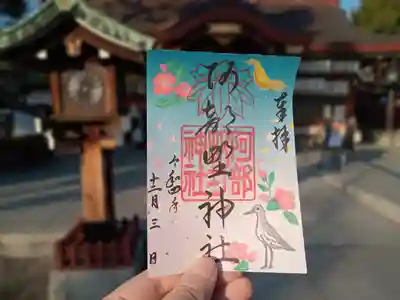 奉拝
阿部野神社
阿部野神社
令和四年
十二月三日